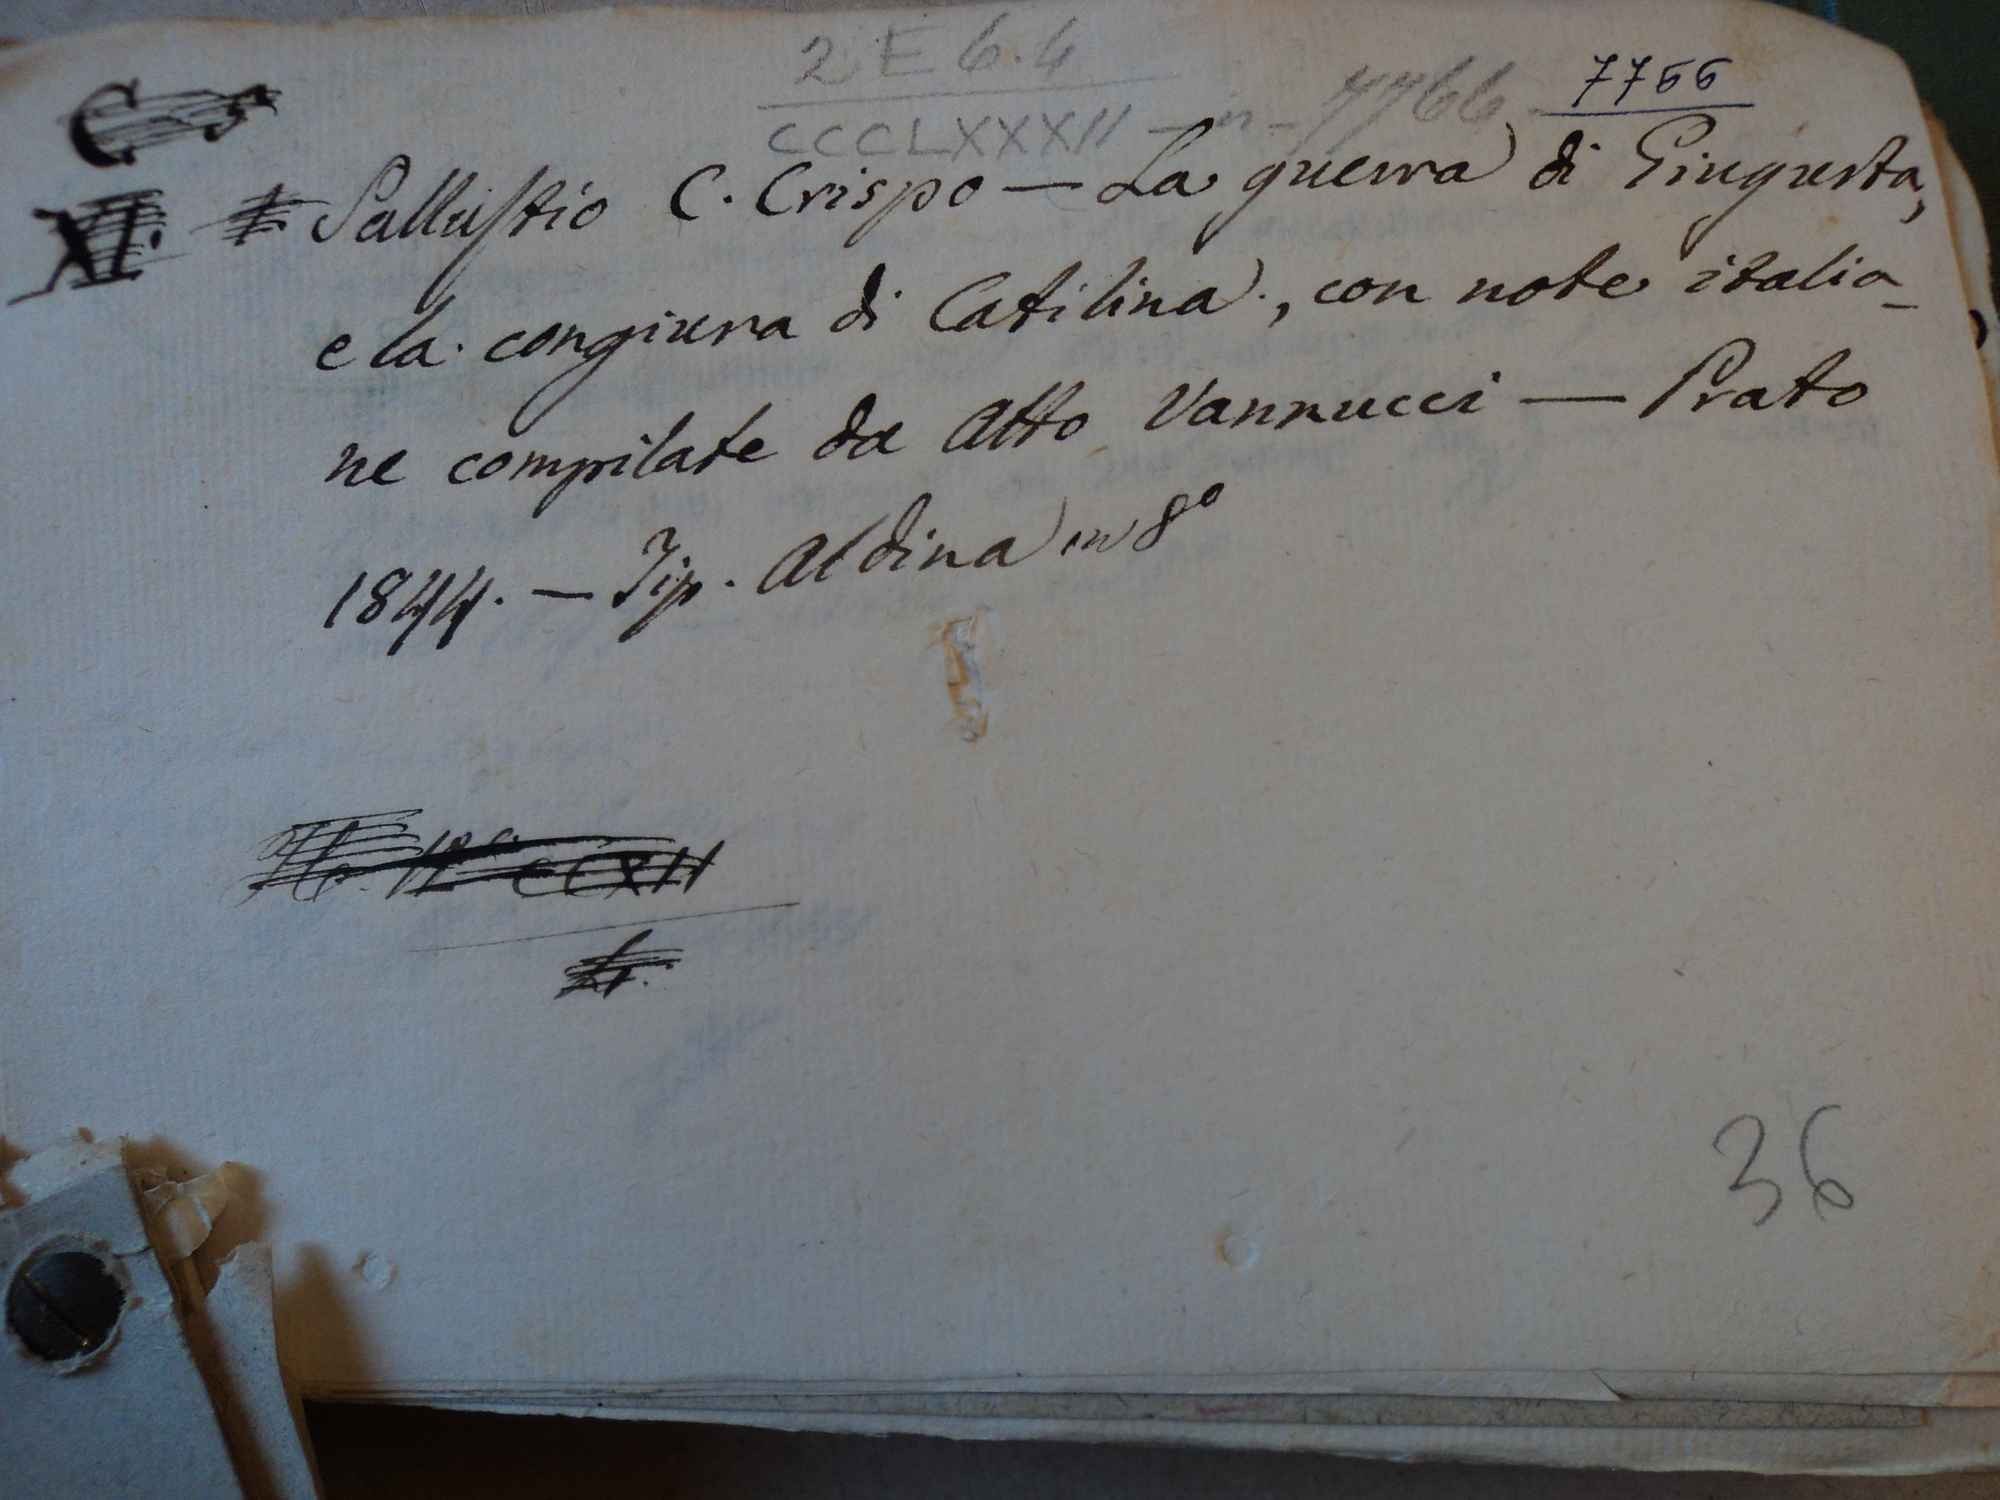 2 E 6.4
CCCLXXXII — n - 7766
7766
Sallustio C. Crispo — La guerra di Giugurta,
e la congiura di Catilina, con note italia-
ne compilate da Atto Vannucci — Prato
1844. — Tip. Aldina in 8º
36